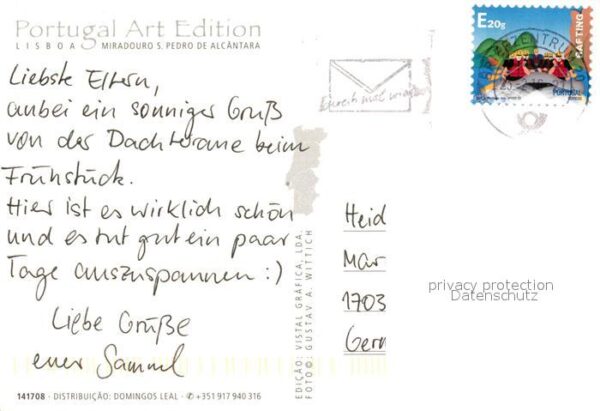 Portugal Art Edition
LISBOA MIRADOURO S. PEDRO DE ALCÂNTARA
Liebste Eltern,
anbei ein sonniger Gruß
von der Dachterasse beim
Frühstück.
Hier ist es wirklich schön
und es tut gut ein paar
Tage auszuspannen :)
Liebe Grüße
euer Samuel
E20g
RAFTING
PORTUGAL
Schreib mal wieder
EDIÇÃO: VISTAL GRÁFICA, LDA.
FOTO © GUSTAV A. WITTICH
Heid
Mar
1703
Germ
privacy protection
Datenschutz
141708 · DISTRIBUIÇÃO: DOMINGOS LEAL · ✆ +351 917 940 316